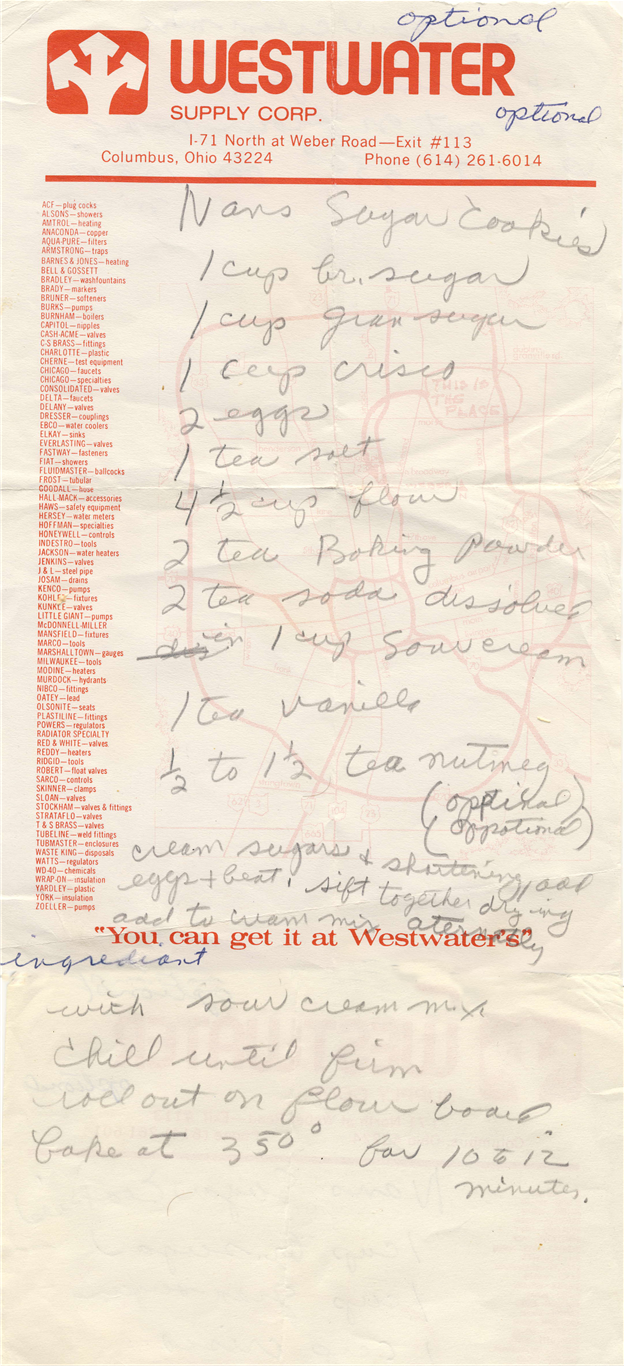 optional
WESTWATER
SUPPLY CORP.
optional
I-71 North at Weber Road—Exit #113
Columbus, Ohio 43224 Phone (614) 261-6014
ACF—plug cocks
ALSONS—showers
AMTROL—heating
ANACONDA—copper
AQUA-PURE—filters
ARMSTRONG—traps
BARNES & JONES—heating
BELL & GOSSETT
BRADLEY—washfountains
BRADY—markers
BRUNER—softeners
BURKS—pumps
BURNHAM—boilers
CAPITOL—nipples
CASH-ACME—valves
C-S BRASS—fittings
CHARLOTTE—plastic
CHERNE—test equipment
CHICAGO—faucets
CHICAGO—specialties
CONSOLIDATED—valves
DELTA—faucets
DELANY—valves
DRESSER—couplings
EBCO—water coolers
ELKAY—sinks
EVERLASTING—valves
FASTWAY—fasteners
FIAT—showers
FLUIDMASTER—ballcocks
FROST—tubular
GOODALL—hose
HALL-MACK—accessories
HAWS—safety equipment
HERSEY—water meters
HOFFMAN—specialties
HONEYWELL—controls
INDESTRO—tools
JACKSON—water heaters
JENKINS—valves
J & L—steel pipe
JOSAM—drains
KENCO—pumps
KOHLER—fixtures
KUNKLE—valves
LITTLE GIANT—pumps
McDONNELL-MILLER
MANSFIELD—fixtures
MARCO—tools
MARSHALLTOWN—gauges
MILWAUKEE—tools
MODINE—heaters
MURDOCK—hydrants
NIBCO—fittings
OATEY—lead
OLSONITE—seats
PLASTILINE—fittings
POWERS—regulators
RADIATOR SPECIALTY
RED & WHITE—valves
REDDY—heaters
RIDGID—tools
ROBERT—float valves
SARCO—controls
SKINNER—clamps
SLOAN—valves
STOCKHAM—valves & fittings
STRATAFLO—valves
T & S BRASS—valves
TUBELINE—weld fittings
TUBMASTER—enclosures
WASTE KING—disposals
WATTS—regulators
WD-40—chemicals
WRAP ON—insulation
YARDLEY—plastic
YORK—insulation
ZOELLER—pumps
THIS IS
THE
PLACE
Nans Sugar Cookies
1 cup br. sugar
1 cup gran sugar
1 cup crisco
2 eggs
1 tea salt
4 ½ cup flour
2 tea Baking Powder
2 tea soda dissolved
in 1 cup Sour cream
1 tea vanilla
½ to 1 ½ tea nutmeg
(optinal)
(oppotional)
cream sugars & shortening, add
eggs + beat. sift together dry ing
add to cream mix aternatly
"You can get it at Westwater's"
ingrediant
with sour cream mix
Chill until firm
roll out on flour board
bake at 350° for 10 to 12
minutes.